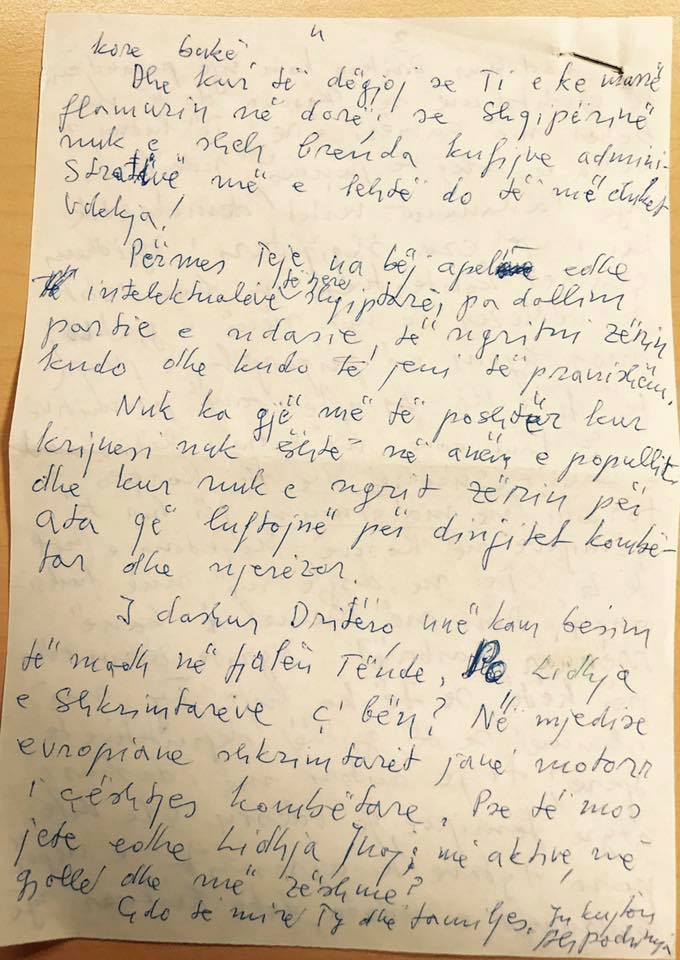 kore bukë"
Dhe kur të dëgjoj se Ti e ke marrë
flamurin në dorë, se Shqipërinë
nuk e sheh brenda kufijve admini-
strativë më e lehtë do të më duket
Vdekja!
Përmes Teje ua bëj apel edhe
intelektualëve të tjerë shqiptarë, pa dallim
partie e ndasie, të ngritni zërin
kudo dhe kudo të jeni të pranishëm.
Nuk ka gjë më të poshtër kur
krijuesi nuk është në anën e popullit
dhe kur nuk e ngrit zërin për
ata që luftojnë për dinjitet kombë-
tar dhe njerëzor.
I dashur Dritëro unë kam besim
të madh në fjalën Tënde. Po Lidhja
e Shkrimtarëve ç'bën? Në mjedise
evropiane shkrimtarët janë motorr
i çështjes kombëtare. Pse të mos
jetë edhe Lidhja Juaj, më aktive, më
gjallë dhe më zëshme?
Çdo të mirë Ty dhe familjes. Ju kujton